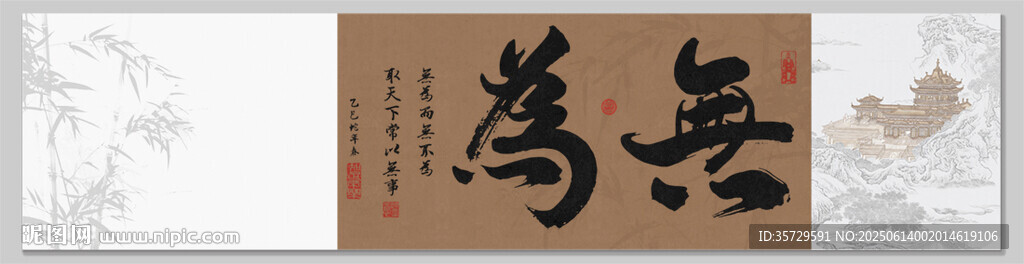 無為
無為而無不為
取天下常以無事
乙巳蛇年春
昵图网 www.nipic.com
ID:35729591 NO:20250614002014619106